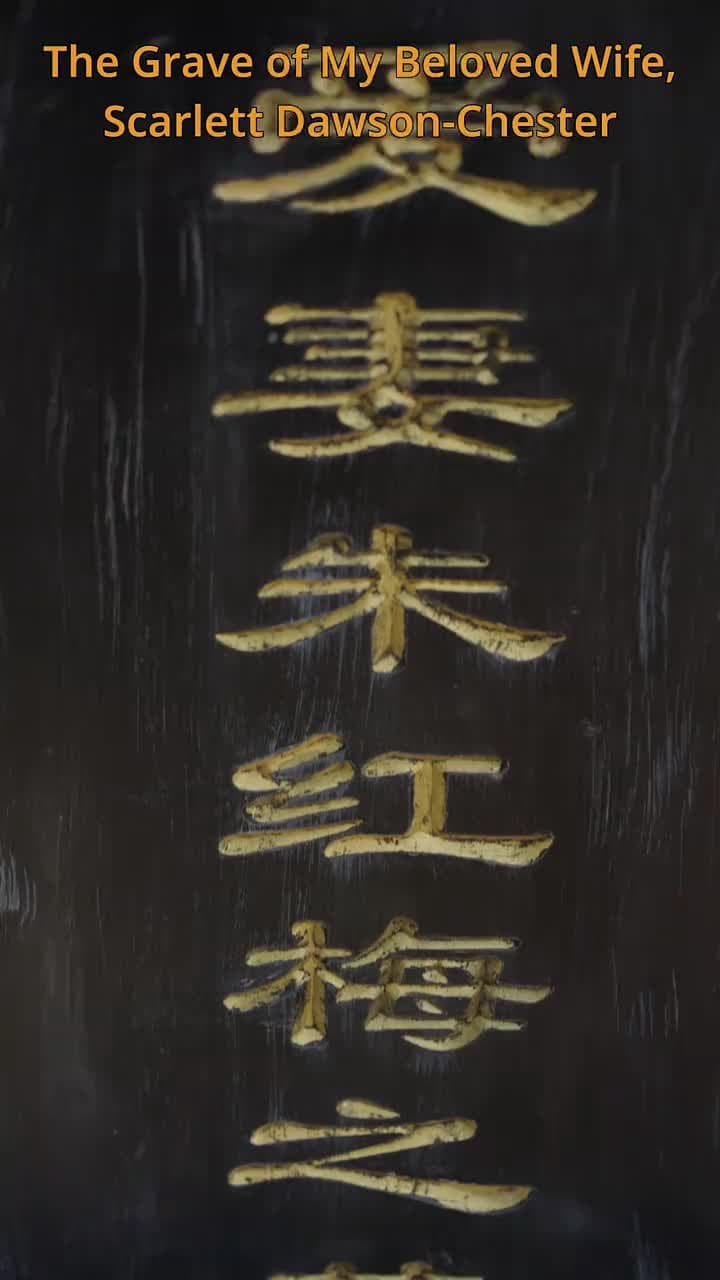 The Grave of My Beloved Wife,
Scarlett Dawson-Chester
爱妻朱红梅之